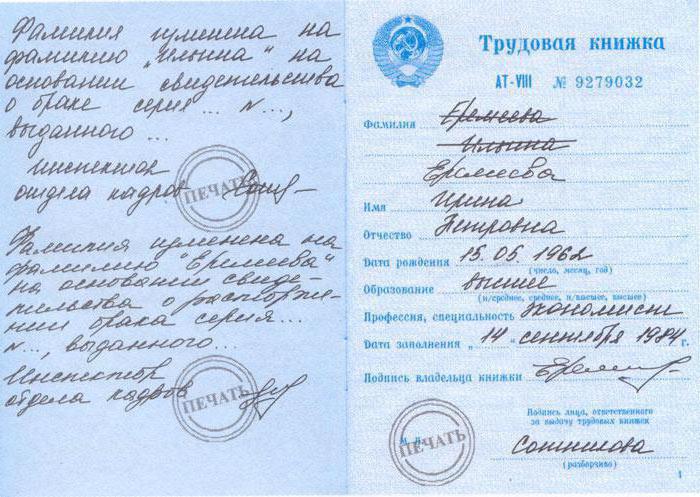 Фамилия изменена на
фамилию „Ильина“ на
основании свидетельства
о браке серия... N...,
выданного...
Инспектор
отдела кадров
ПЕЧАТЬ
Фамилия изменена на
фамилию "Еремеева"
на основании свиде-
тельства о расторже-
нии брака серия...
N..., выданного...
Инспектор
отдела кадров
ПЕЧАТЬ
Трудовая книжка
AT-VIII № 9279032
Фамилия Еремеева
Ильина
Еремеева
Имя Ирина
Отчество Петровна
Дата рождения 15.05.1962
(число, месяц, год)
Образование высшее
(н/среднее, среднее, н/высшее, высшее)
Профессия, специальность экономист
Дата заполнения „14“ сентября 1984 г.
Подпись владельца книжки
Подпись лица, ответственного
за выдачу трудовых книжек
М. П.
ПЕЧАТЬ
(разборчиво)
1